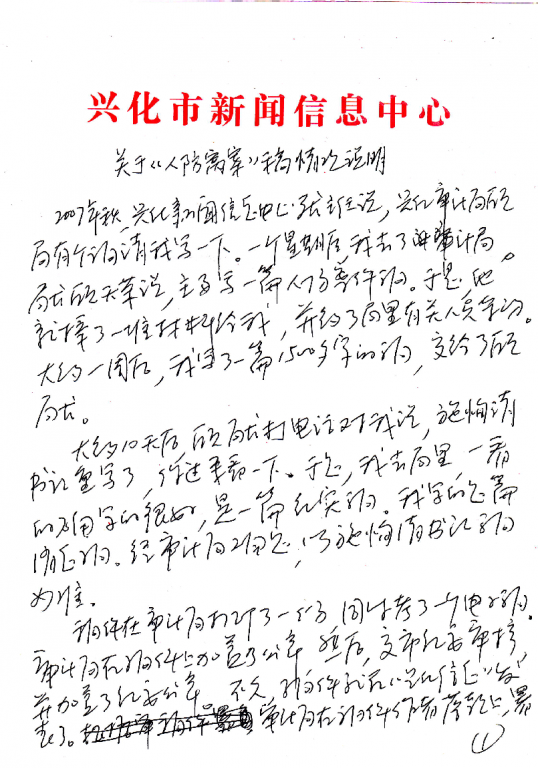 兴化市新闻信息中心
关于《人防窝案》稿情况说明
2007年秋,兴化新闻信息中心张主任说,兴化审计局顾
局有个稿请我写一下。一个星期后我去了审计局,
局长顾天華说,主要写一篇人防案件稿。于是他
就捧了一堆材料给我,并约了局里有关人员
大约一周后,我写了一篇1500多字的稿,交给了顾
局长。
大约10天后,顾局长打电话对我说,施
书记重写了,你过来看一下。于是,我去局里,一看
写的很好,是一篇纪实稿。我写的是篇
通讯稿。经审计局
为准。
稿件在审计局打印了一份,同时考了一个电子稿。
审计局在稿件上加盖了公章,然后,交市纪委审核,
并加盖了纪委公章。不久,稿件就在《兴化信息》发
表了。审计局在稿件
(1)